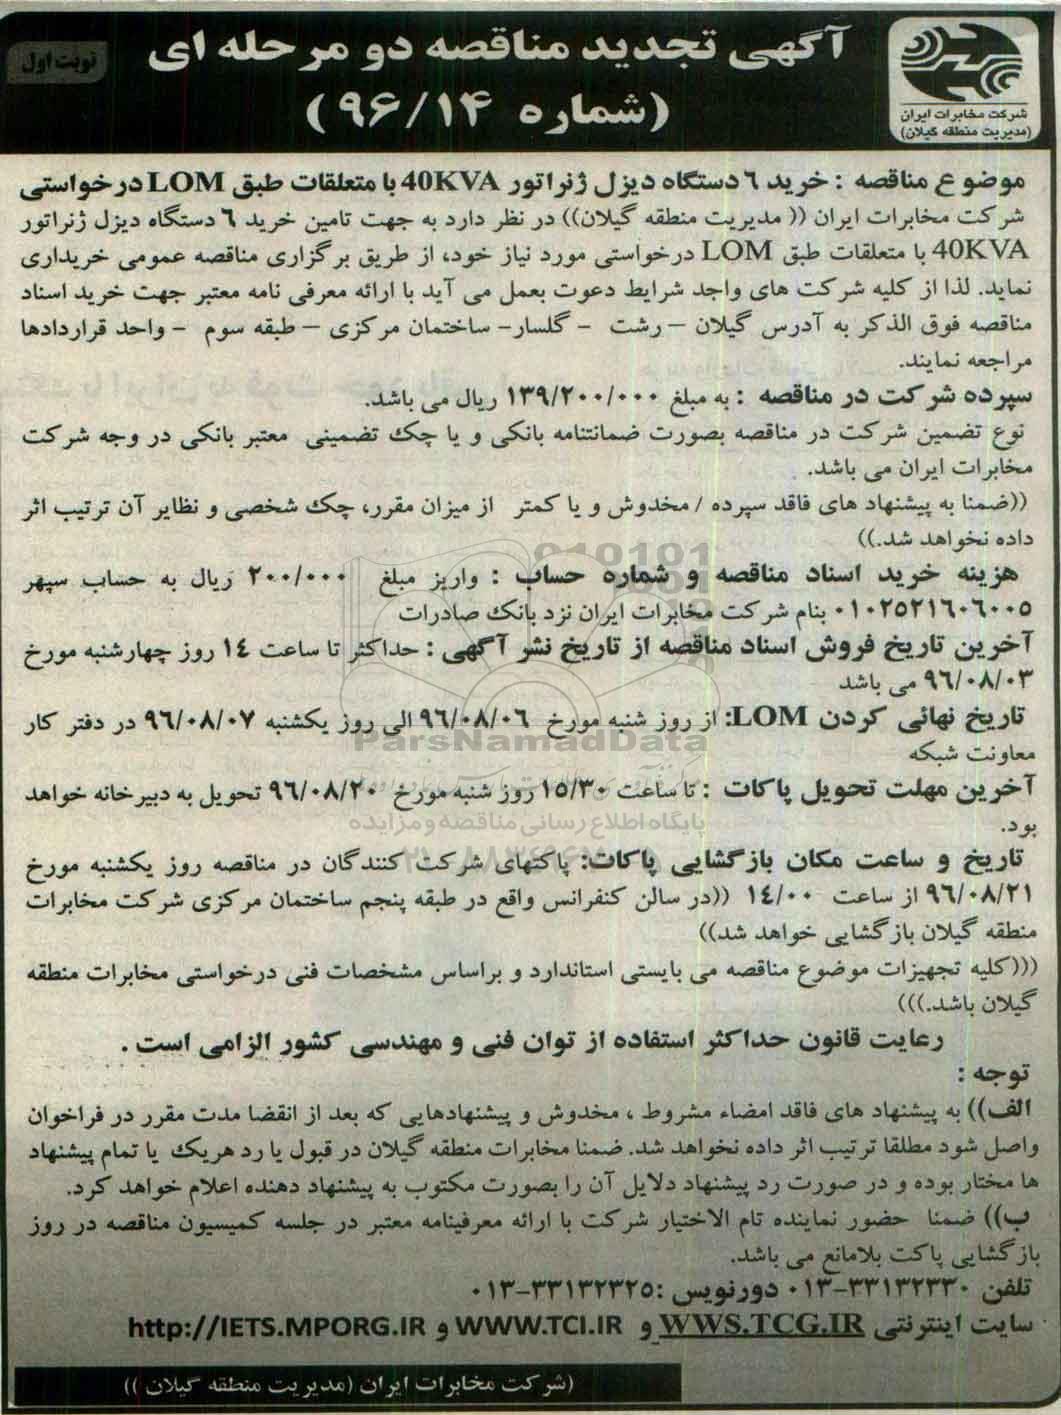 آگهی تجدید مناقصه دو مرحله ای
نوبت اول
(شماره ۹۶/۱۴)
شرکت مخابرات ایران
(مدیریت منطقه گیلان)
موضوع مناقصه : خرید ٦ دستگاه دیزل ژنراتور 40KVA با متعلقات طبق LOM درخواستی
شرکت مخابرات ایران (( مدیریت منطقه گیلان)) در نظر دارد به جهت تامین خرید ٦ دستگاه دیزل ژنراتور
40KVA با متعلقات طبق LOM درخواستی مورد نیاز خود، از طریق برگزاری مناقصه عمومی خریداری
نماید. لذا از کلیه شرکت های واجد شرایط دعوت بعمل می آید با ارائه معرفی نامه معتبر جهت خرید اسناد
مناقصه فوق الذکر به آدرس گیلان – رشت - گلسار- ساختمان مرکزی – طبقه سوم - واحد قراردادها
مراجعه نمایند.
سپرده شرکت در مناقصه : به مبلغ ۱۳۹/۲۰۰/۰۰۰ ریال می باشد.
نوع تضمین شرکت در مناقصه بصورت ضمانتنامه بانکی و یا چک تضمینی معتبر بانکی در وجه شرکت
مخابرات ایران می باشد.
((ضمنا به پیشنهاد های فاقد سپرده / مخدوش و یا کمتر از میزان مقرر، چک شخصی و نظایر آن ترتیب اثر
داده نخواهد شد.))
هزینه خرید اسناد مناقصه و شماره حساب : واریز مبلغ ۲۰۰/۰۰۰ ریال به حساب سپهر
۰۱۰۲۵۲۱٦۰٦۰۰۵ بنام شرکت مخابرات ایران نزد بانک صادرات
آخرین تاریخ فروش اسناد مناقصه از تاریخ نشر آگهی : حداکثر تا ساعت ١٤ روز چهارشنبه مورخ
۹٦/۰۸/۰۳ می باشد
تاریخ نهائی کردن LOM: از روز شنبه مورخ ۹٦/۰۸/۰٦ الی روز یکشنبه ۹٦/۰۸/۰۷ در دفتر کار
معاونت شبکه
ParsNamadData
آخرین مهلت تحویل پاکات : تا ساعت ۱۵/۳۰ روز شنبه مورخ ۹٦/۰۸/۲۰ تحویل به دبیرخانه خواهد
بود.
پایگاه اطلاع رسانی مناقصه و مزایده
تاریخ و ساعت مکان بازگشایی پاکات: پاکتهای شرکت کنندگان در مناقصه روز یکشنبه مورخ
۹٦/۰۸/۲۱ از ساعت ١٤/۰۰ ((در سالن کنفرانس واقع در طبقه پنجم ساختمان مرکزی شرکت مخابرات
منطقه گیلان بازگشایی خواهد شد))
(((کلیه تجهیزات موضوع مناقصه می بایستی استاندارد و براساس مشخصات فنی درخواستی مخابرات منطقه
گیلان باشد.)))
رعایت قانون حداکثر استفاده از توان فنی و مهندسی کشور الزامی است .
توجه :
الف)) به پیشنهاد های فاقد امضاء مشروط ، مخدوش و پیشنهادهایی که بعد از انقضا مدت مقرر در فراخوان
واصل شود مطلقا ترتیب اثر داده نخواهد شد. ضمنا مخابرات منطقه گیلان در قبول یا رد هریک یا تمام پیشنهاد
ها مختار بوده و در صورت رد پیشنهاد دلایل آن را بصورت مکتوب به پیشنهاد دهنده اعلام خواهد کرد.
ب)) ضمنا حضور نماینده تام الاختیار شرکت با ارائه معرفینامه معتبر در جلسه کمیسیون مناقصه در روز
بازگشایی پاکت بلامانع می باشد.
تلفن ۳۳۱۳۲۳۳۰-۰۱۳ دورنویس :۳۳۱۳۲۳۲۵-۰۱۳
سایت اینترنتی WWS.TCG.IR و WWW.TCI.IR و http://IETS.MPORG.IR
(شرکت مخابرات ایران (مدیریت منطقه گیلان ))